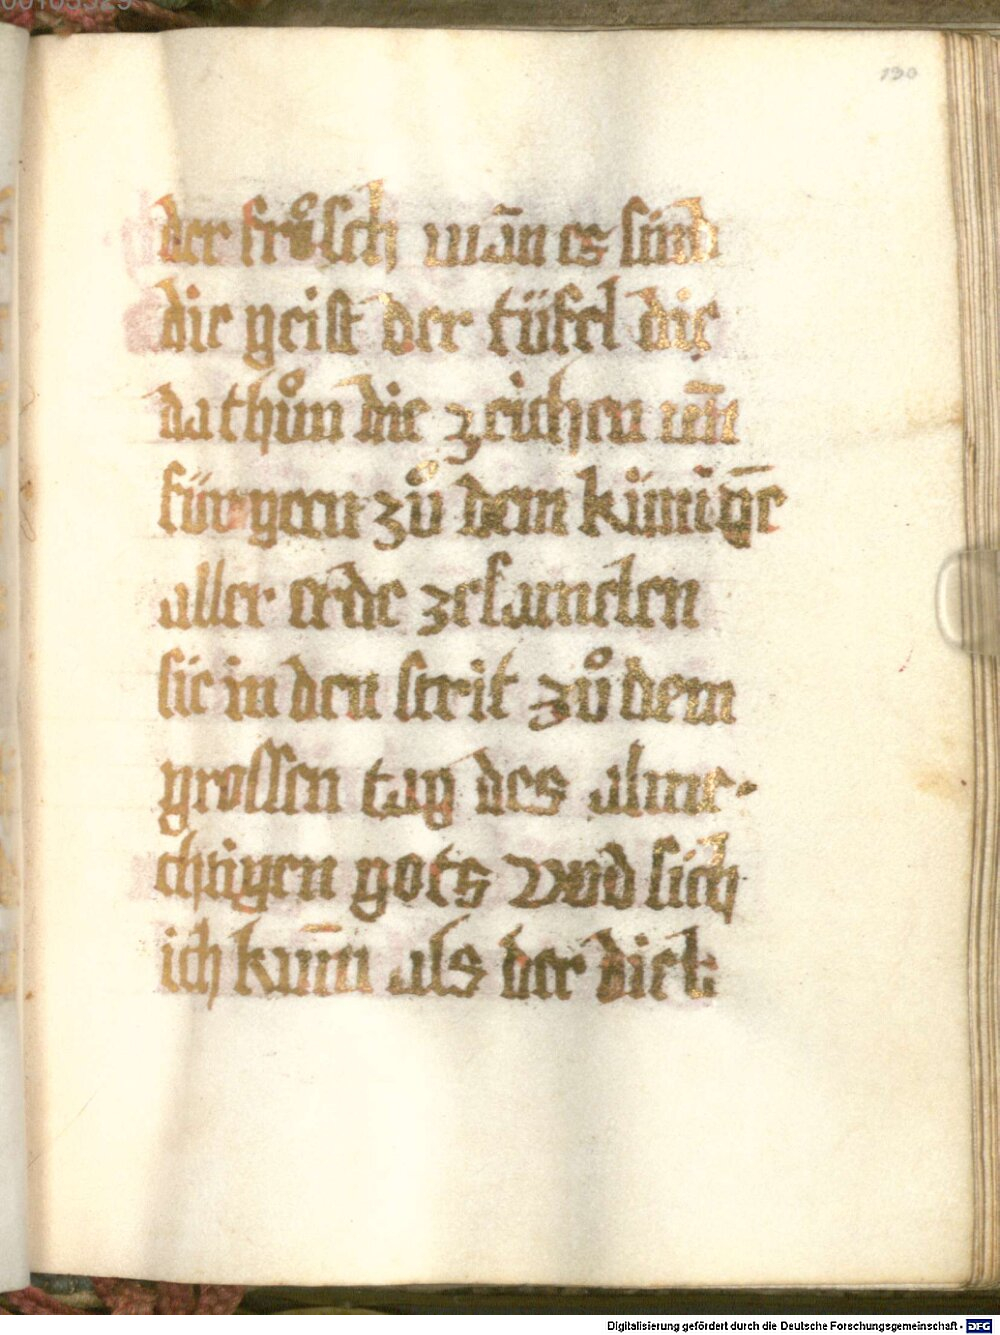 130
der froͤsch wān es sind
die geist der tüfel die
da thuͦn die zeichen vn̄
für gern zuͦ dem künigē
aller erde ze samelen
sie in den strit zuͦ dem
grossen tag des alme-
chtigen gots vnd sich
ich kum̄ als der dieb
Digitalisierung gefördert durch die Deutsche Forschungsgemeinschaft - DFG